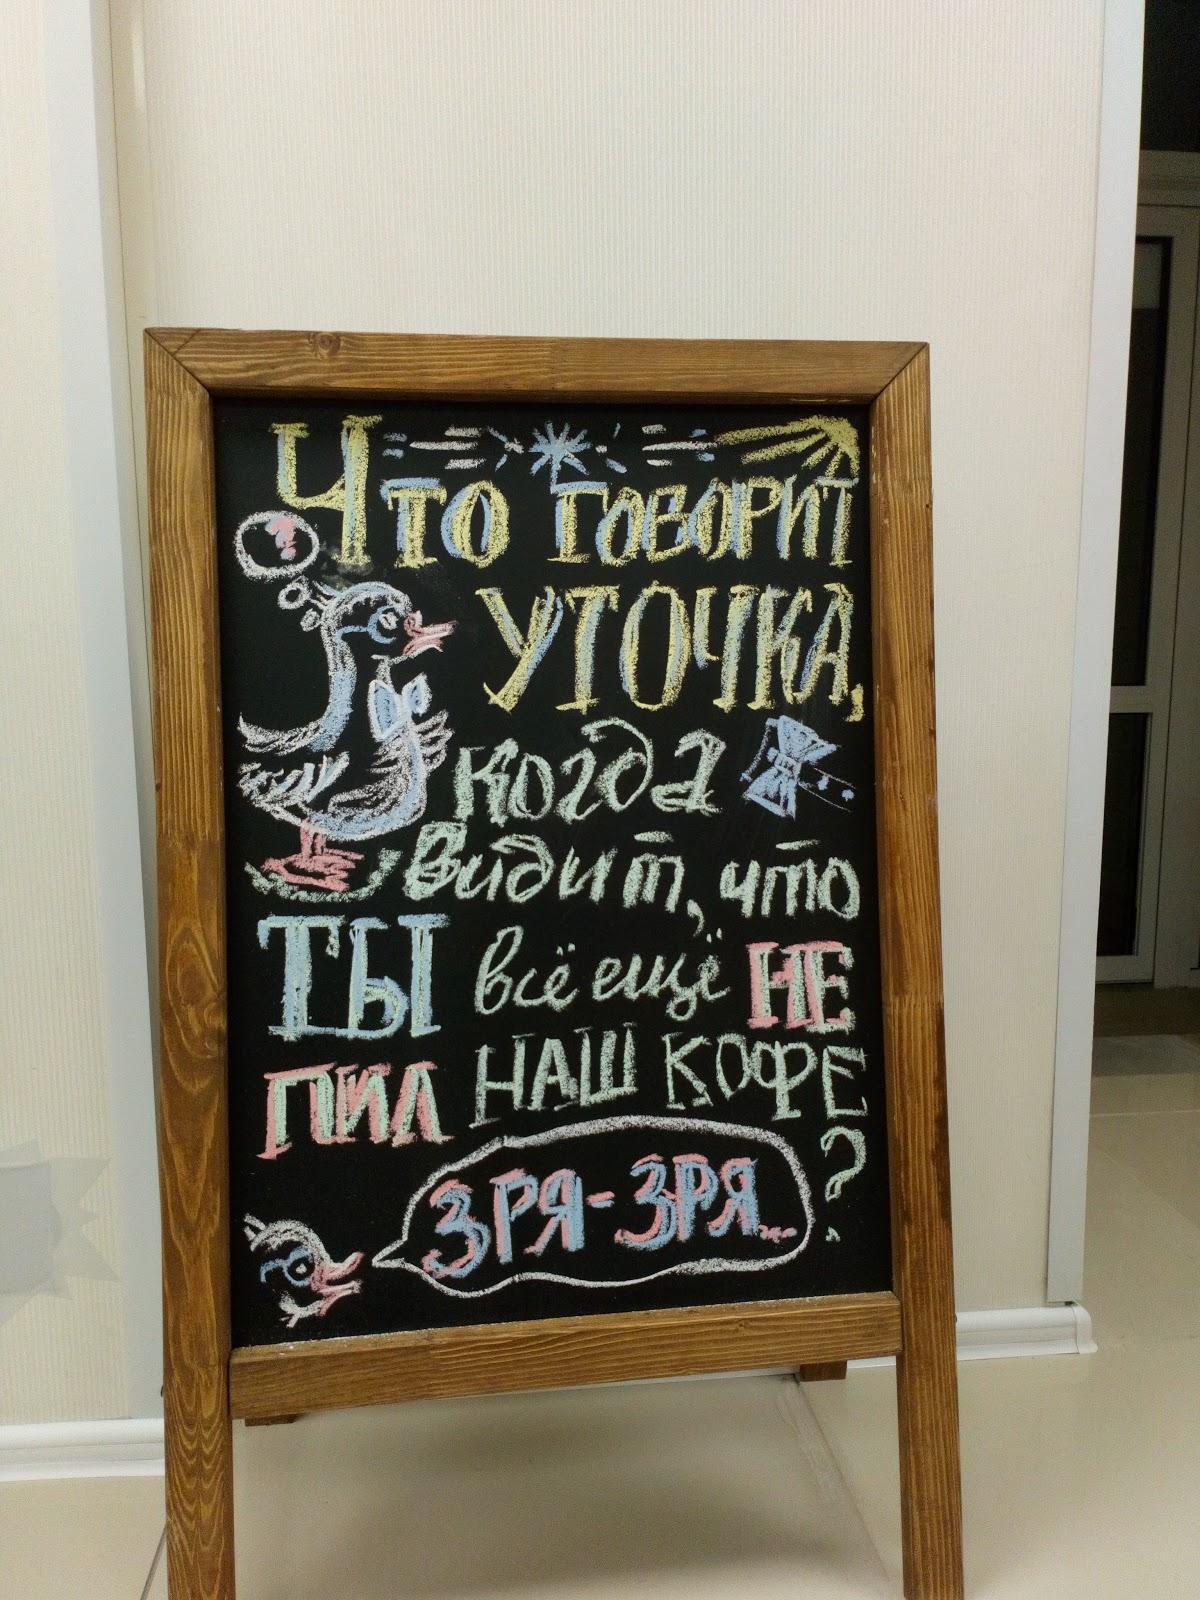 Что говорит
?
уточка,
когда
видит, что
ты всё ещё не
пил наш кофе
?
Зря-зря...